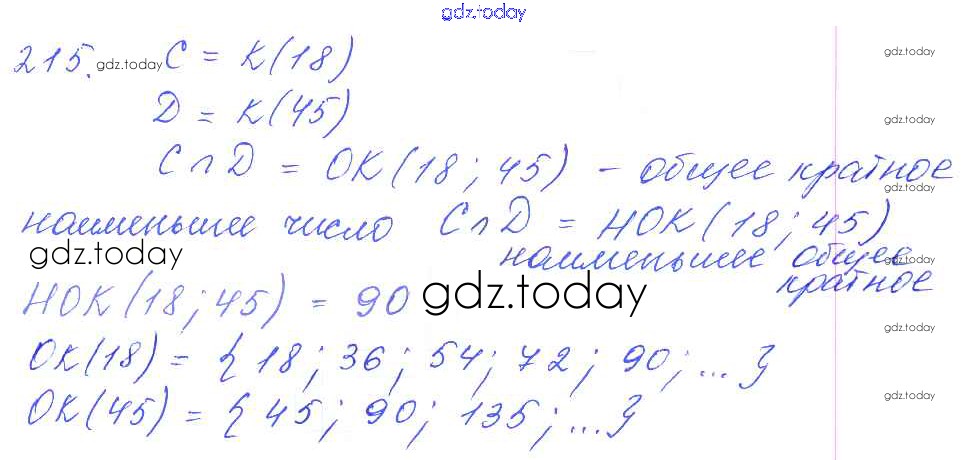 gdz.today
215. gdz.today C = K(18) gdz.today
D = K(45) gdz.today
C∩D = OK(18; 45) – общее кратное
gdz.today
наименьшее число C∩D = НОК(18; 45)
gdz.today наименьшее общее gdz.today
кратное
НОК(18; 45) = 90 gdz.today
gdz.today
OK(18) = {18; 36; 54; 72; 90; ...}
OK(45) = {45; 90; 135; ...} gdz.today